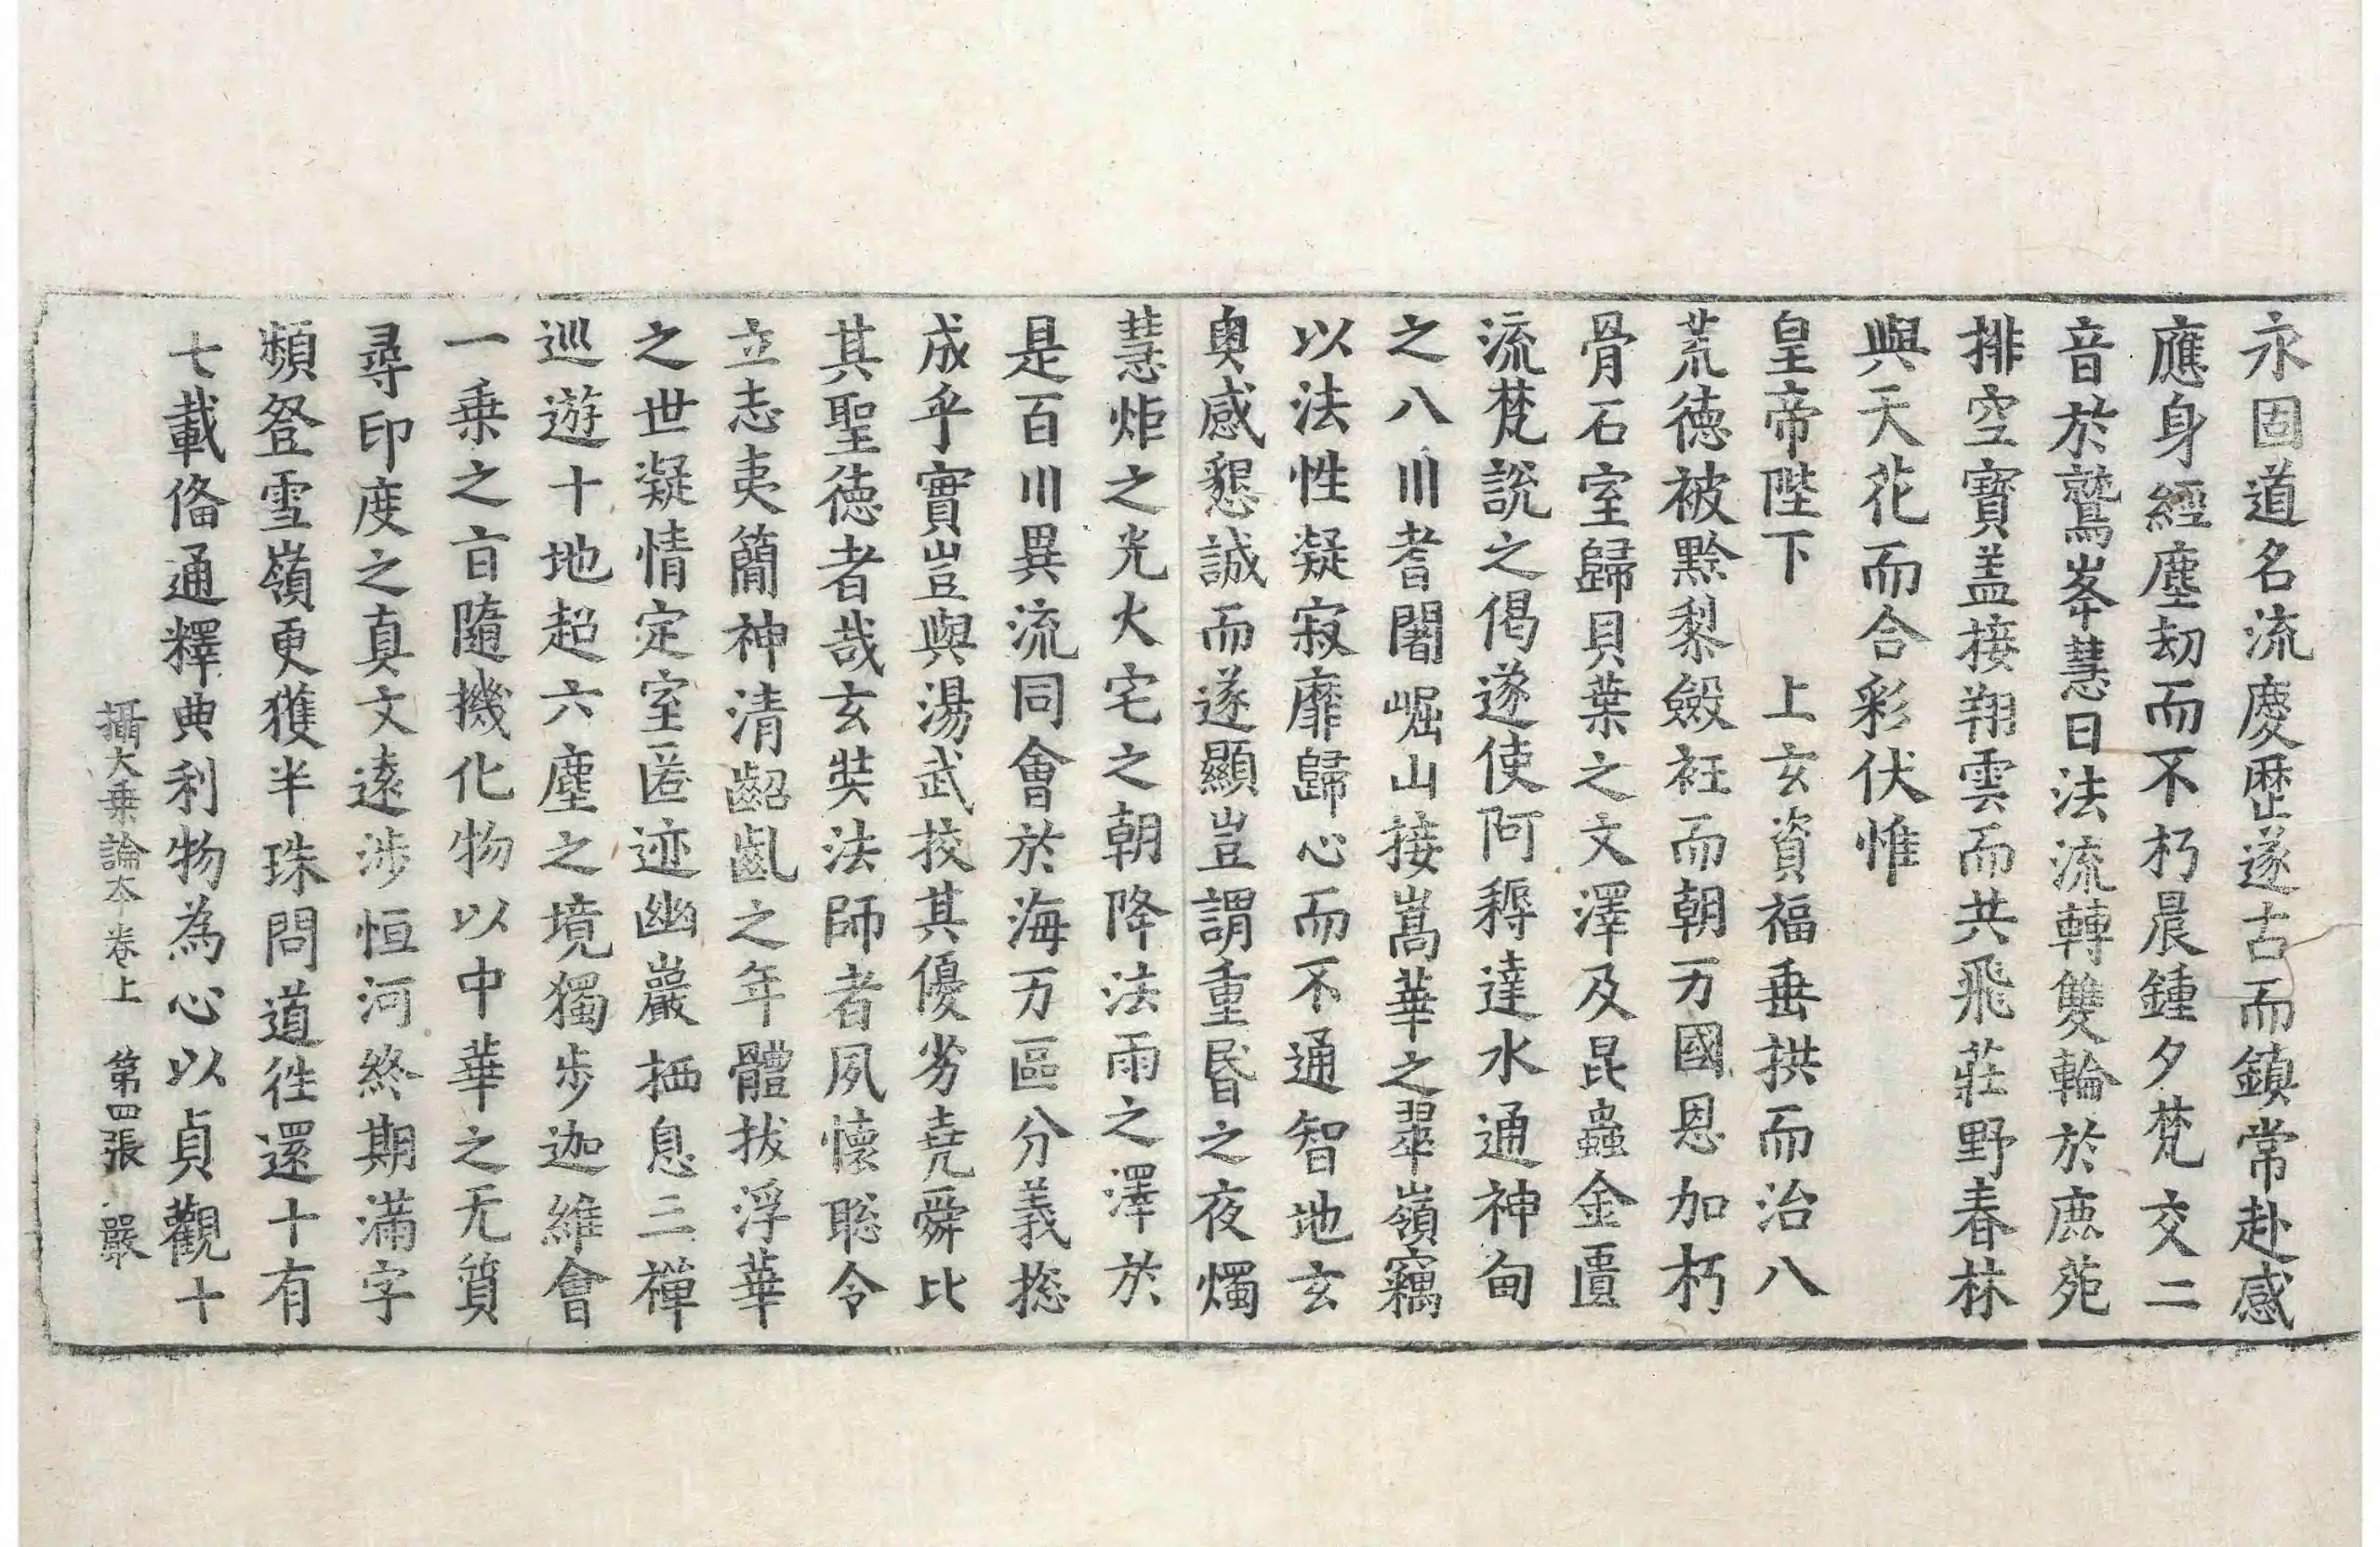 永固道名流慶歴遂古而鎮常赴感
應身經塵劫而不朽晨鍾夕梵交二
音於鷲峯慧日法流轉雙輪於鹿苑
排空寶盖接翔雲而共飛莊野春林
與天花而合彩伏惟
皇帝陛下　上玄資福垂拱而治八
荒德被黔黎斂衽而朝万國恩加朽
骨石室歸貝葉之文澤及昆蟲金匱
流梵說之偈遂使阿耨達水通神甸
之八川耆闍崛山接嵩華之翠嶺竊
以法性凝寂靡歸心而不通智地玄
奥感懇誠而遂顯豈謂重昏之夜燭
慧炬之光火宅之朝降法雨之澤於
是百川異流同會於海万區分義揔
成乎實豈與湯武挍其優劣堯舜比
其聖德者哉玄奘法師者夙懷聡令
立志夷簡神清齠齓之年體拔浮華
之世凝情定室匿迹幽巖栖息三禅
巡遊十地超六塵之境獨步迦維會
一乗之旨隨機化物以中華之无質
尋印度之真文遠涉恒河終期滿字
頻登雪嶺更獲半珠問道徃還十有
七載俻通釋典利物為心以貞觀十
攝大乗論本卷上　第四張　嚴